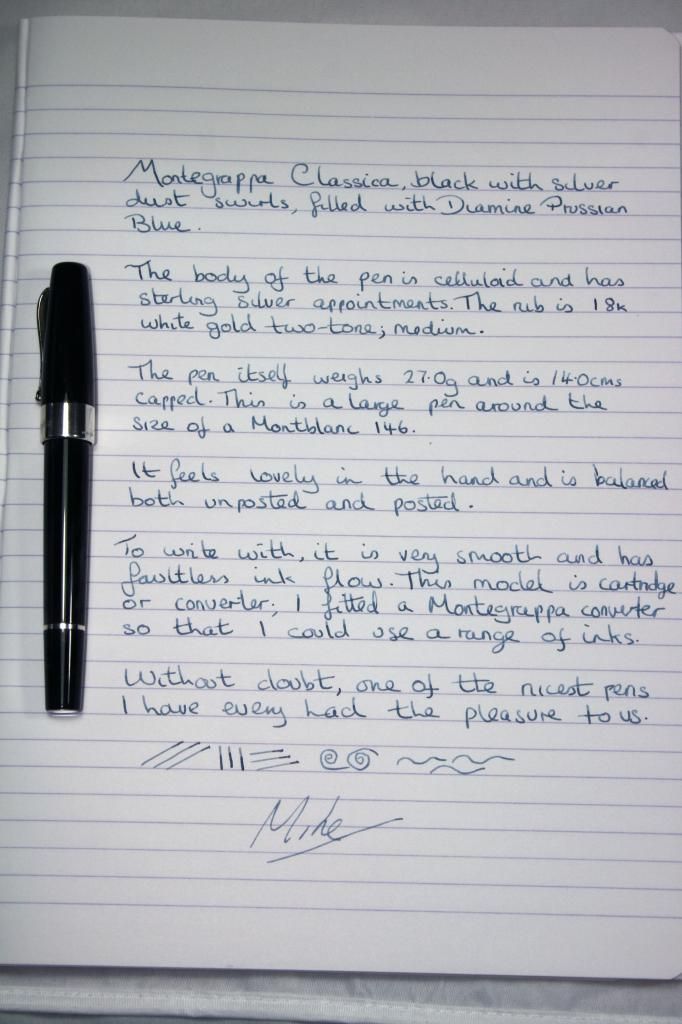 Montegrappa Classica, black with silver
dust swirls, filled with Diamine Prussian
Blue.
The body of the pen is celluloid and has
sterling silver appointments. The nib is 18k
white gold two-tone; medium.
The pen itself weighs 27.0g and is 14.0cms
capped. This is a large pen around the
size of a Montblanc 146.
It feels lovely in the hand and is balanced
both unposted and posted.
To write with, it is very smooth and has
faultless ink flow. This model is cartridge
or converter; I fitted a Montegrappa converter
so that I could use a range of inks.
Without doubt, one of tte nicest pens
I have every had the pleasure to us.
Mike